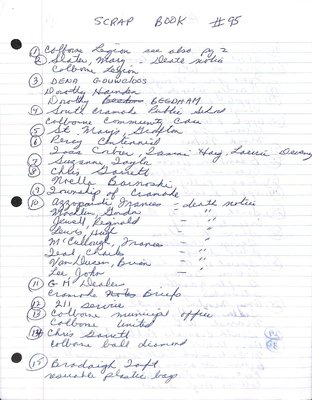 SCRAP BOOK #95
1 Colborne Legion see also pg 2
2 Slater, Mary - Death notice
Colborne Legion
3 DENA GOUWELOOS
Dorothy
Dorothy BEGDHAM
4 South Cramahe Public School
Colborne Community Care
5 St. Mary's
6 Percy Centennial
Hay, Laurie
7 Suzanne Taylor
8 Chris Garrett
Noella
9 Township of Cramahe
10 Azzopardi, Frances - death notice
Linda - "
Jewell, Reginald - "
Lewis, Hugh - "
McCullough, Frances - "
Teal, Charles - "
Van Dusen, Brian - "
Lee, John - "
11 GM Dealer
Cramahe Notes Briefs
12 211 service
13 Colborne municipal office
Colborne United
14 Chris Garrett
Colborne ball diamond
15 Taft
reusable plastic bag